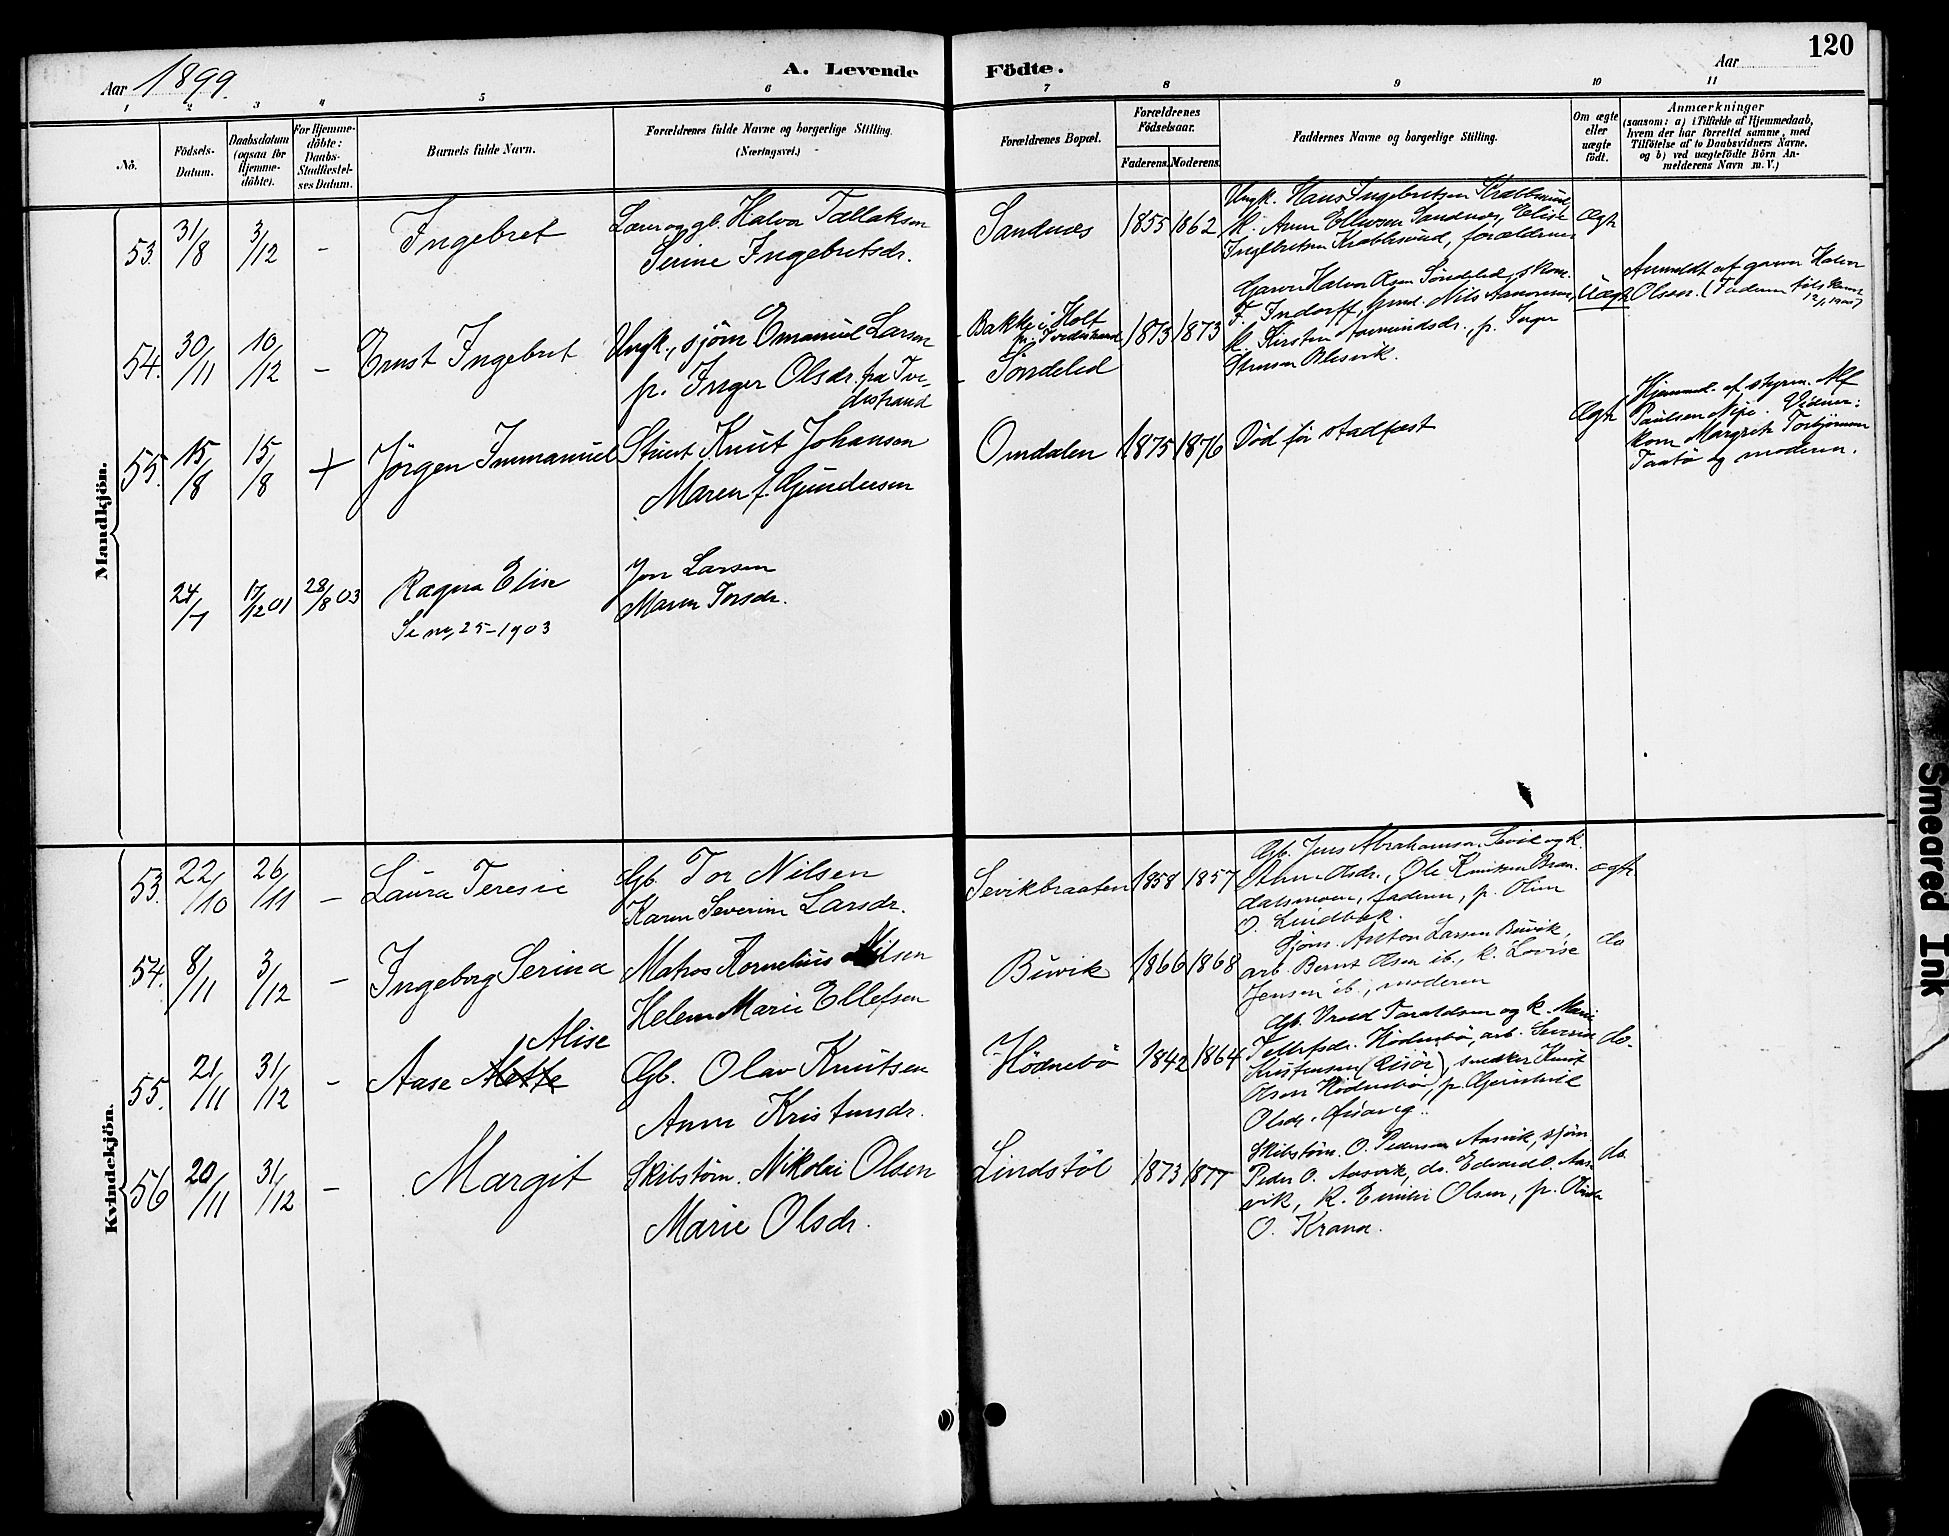 120
Aar 1899.
A. Levende Födte.
Aar
1 2 3 4 5 6 7 8 9 10 11
No.
Födsels-Datum.
Daabsdatum (ogsaa for Hjemme-döbte).
For Hjemme-döbte: Daabs-Stadfæstel-ses Datum.
Barnets fulde Navn.
Forældrenes fulde Navne og borgerlige Stilling. (Næringsvei.)
Forældrenes Bopæl.
Forældrenes Födselsaar.
Faderens. Moderens.
Faddernes Navne og borgerlige Stilling.
Om ægte eller uægte födt.
Anmærkninger (saasom: a) i Tilfælde af Hjemmedaab, hvem der har forrettet samme, med Tilföielse af to Daabsvidners Navne, og b) ved uægtefödte Börn An-melderens Navn m. V.)
Mandkjön.
53. 31/8 3/12 -
Ingebret
Halvor Tallaksen
Serine Ingebretsdr.
Sandnæs 1855 1862
Ungk. Hans Ingebretsen Krabbesund,
k. Anne Ellevsen Sandnæs, Elise
Ingebretsen Krabbesund, forældrene
Ægte
54. 30/11 10/12 -
Ernst Ingebret
Ungk., sjöm Emanuel Larsen
p. Inger Olsdr. fra Tve-
destrand
Bakke i Holt
pr. Tvedestrand
Söndeled
1873 1873
Garver Halvor Olsen Söndeled, skom.
F. Indorff, Nils Aanonsen,
k. Kirsten Aamundsdr., p. Inger
Blesvik.
Uægte
Anmeldt af garver Halvor
Olsen.
55. 15/8 15/8 +
Jörgen Immanuel
Stuert Knut Johansen
Maren f. Gundersen
Omdalen 1875 1876
Död för stadfæst
Ægte
Hjemmed. af styrm. Alf
Paulsen. Vidner:
kone Margrete Torbjörnsen
Taatö og moderen.
24/7 17/12 01 28/8 03
Ragna Elise
Se no, 25-1903
Jon Larsen
Maren Torsdr.
Kvindekjön.
53. 22/10 26/11 -
Laura Teresie
Gb. Tor Nilsen
Karen Severine Larsdr.
Sevikbraaten 1858 1857
Gb. Jens Abrahamsen Sevik og k.
Anne Olsdr., Ole Knutsen Bran-
dalsmoen, faderen, p. Oline
O. Lindbæk.
ægte
54. 8/11 3/12 -
Ingeborg Serina
Matros Kornelius Nilsen
Helene Marie Ellefsen
Buvik 1866 1868
Sjöm. Anton Larsen Buvik,
arb. Bernt Olsen ib., k. Lovise
Jensen ib., moderen
do
55. 21/11 31/12 -
Aase Mette Alise
Gb. Olav Knutsen
Anne Kristensdr.
Hödnebö 1842 1864
Gb. Vrold Taraldsen og k. Marie
Tellefsdr. Hödnebö, arb. Severin
Kristensen (Risör), snedker Knut
Olsen Hödnebö, p. Gunhild
Olsdr.
do.
56 20/11 31/12 -
Margit
Skibstöm. Nikolai Olsen
Marie Olsdr.
Lindstöl 1873 1877
Skibstöm. O. Pedersen Aasvik, sjöm
Peder O. Aasvik, do. Edvard O. Aas-
vik, k. Emilie Olsen, p.
O. Krana.
do
Smeared Ink